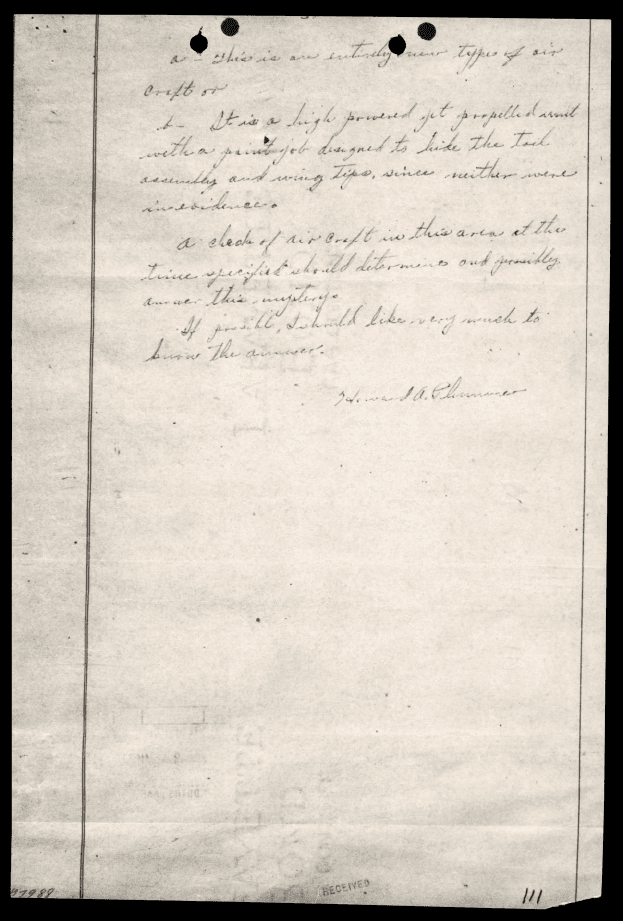 a - This is an entirely new type of air
craft or
b - It is a high powered jet propelled unit
with a paint job designed to hide the tail
assembly and wing tips, since neither were
in evidence.
A check of air craft in this area at the
time specified should determine and possibly
answer this mystery.
If possible, I should like very much to
know the answer.
Howard A.
RECEIVED
111